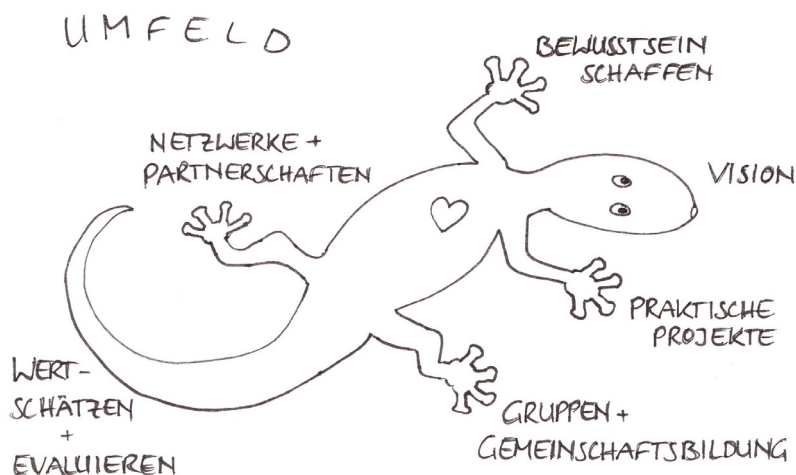 UMFELD
BEWUSSTSEIN
SCHAFFEN
NETZWERKE +
PARTNERSCHAFTEN
VISION
PRAKTISCHE
PROJEKTE
WERT-
SCHÄTZEN
+
EVALUIEREN
GRUPPEN +
GEMEINSCHAFTSBILDUNG